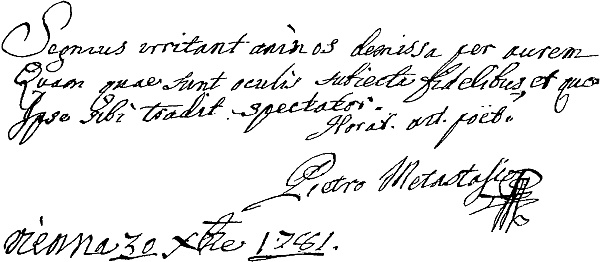 Segnius irritant animos demissa per aurem
Quam quae sunt oculis subiecta fidelibus, et quae
Ipse sibi tradit spectator.
Horat. art. poët.
Pietro Metastasio
Vienna 30 Xbre 1781.